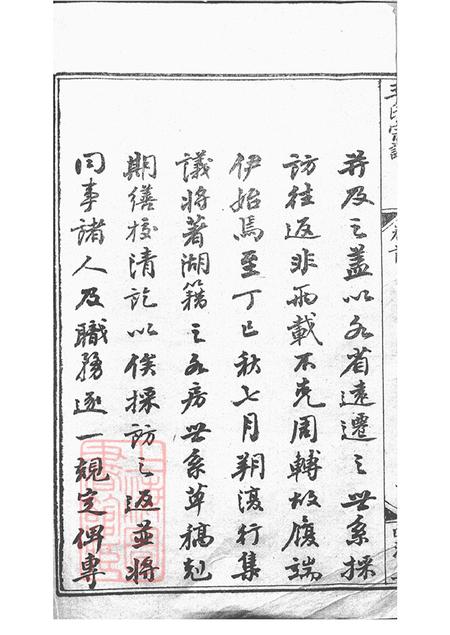 王氏宗譜
并及之蓋以各省遠遷之世系採
訪往返非兩載不克周轉故履端
伊始焉至丁巳秋七月朔復行集
議將著湖籍之各房世系草稿剋
期繕校清訖以俟採訪之返並將
同事諸人及職務逐一規定俾專